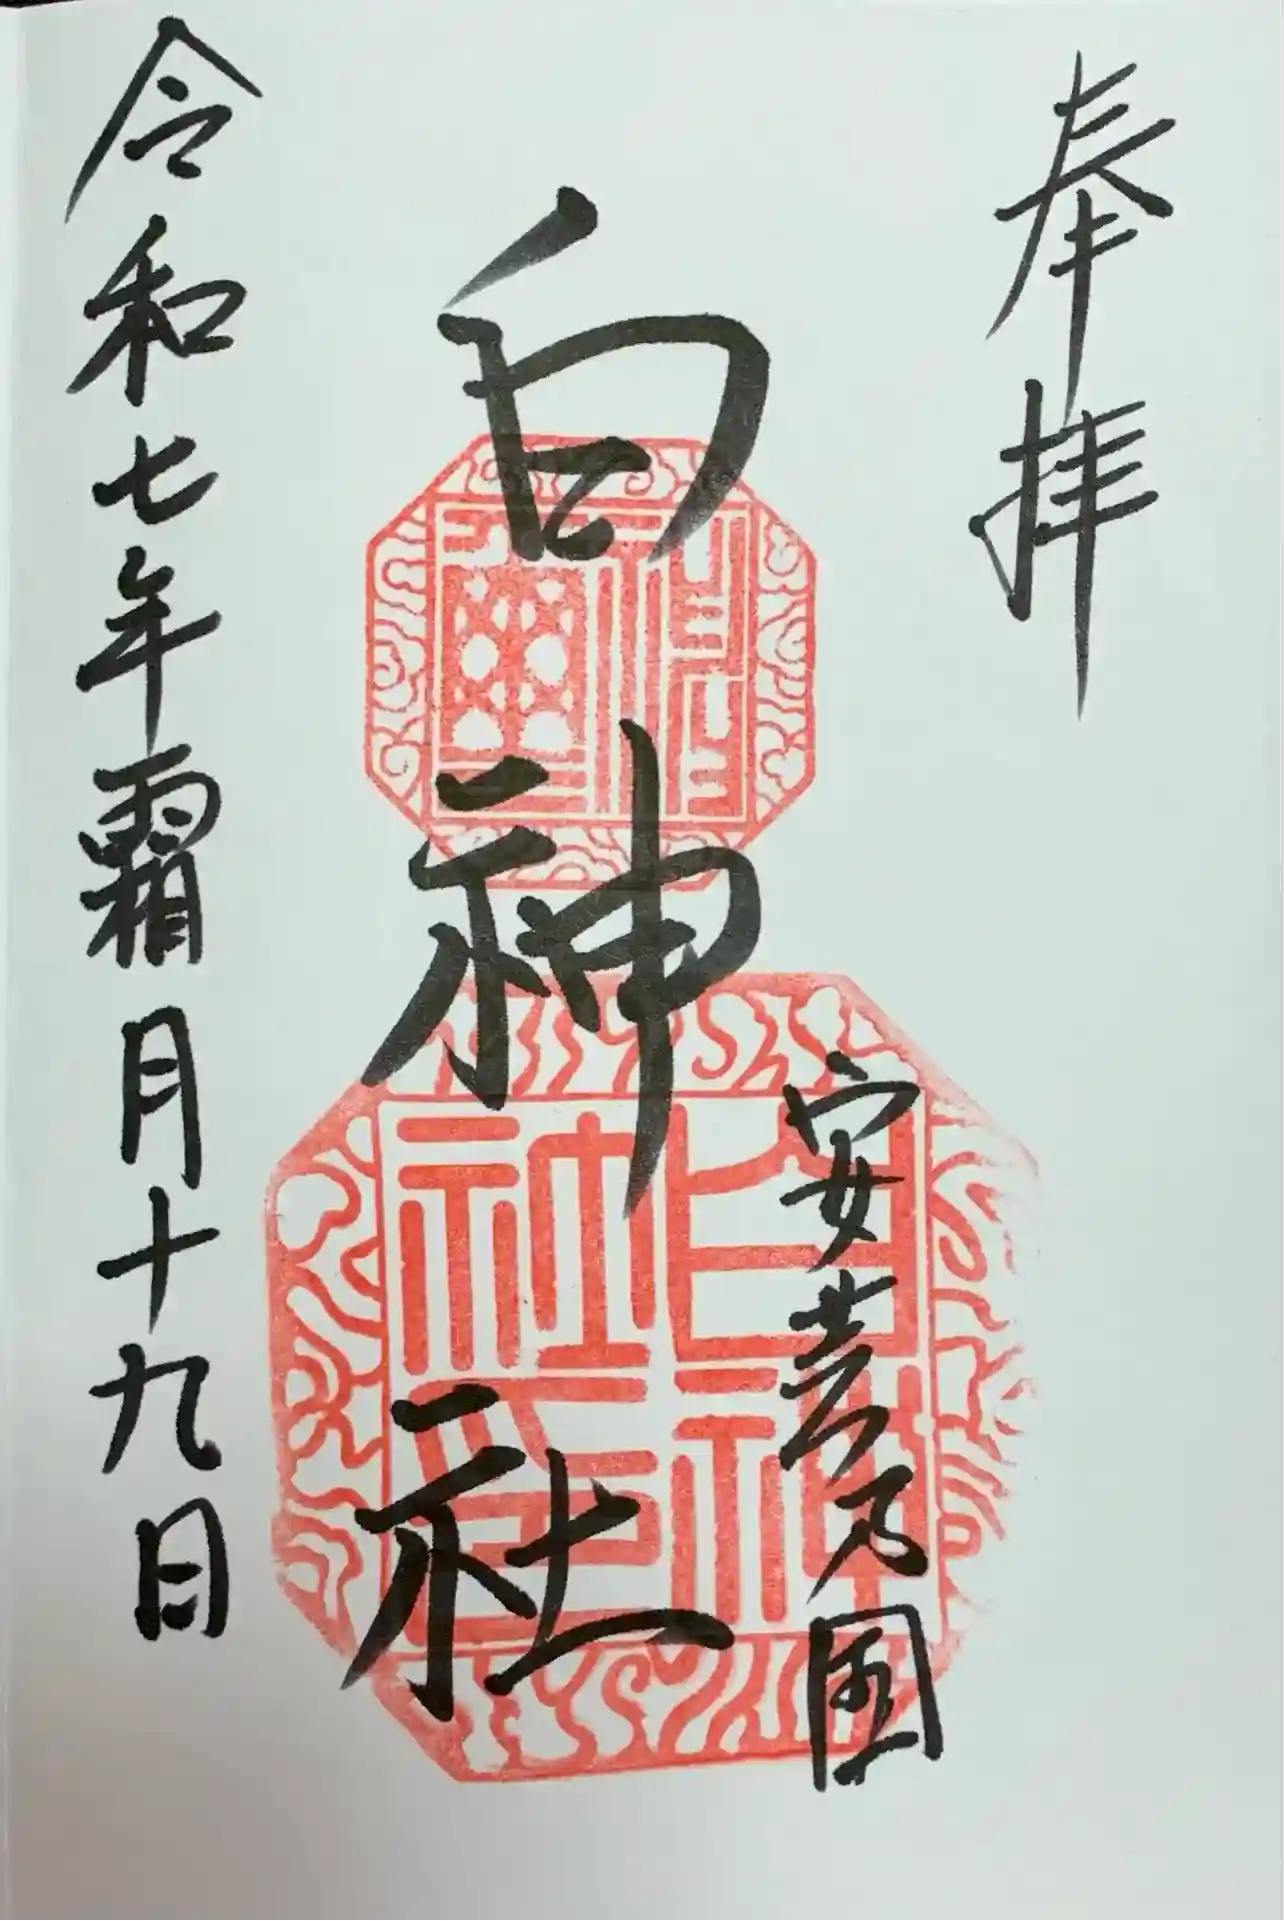 奉拝
安芸乃国
白神社
白神社印
令和七年霜月十九日